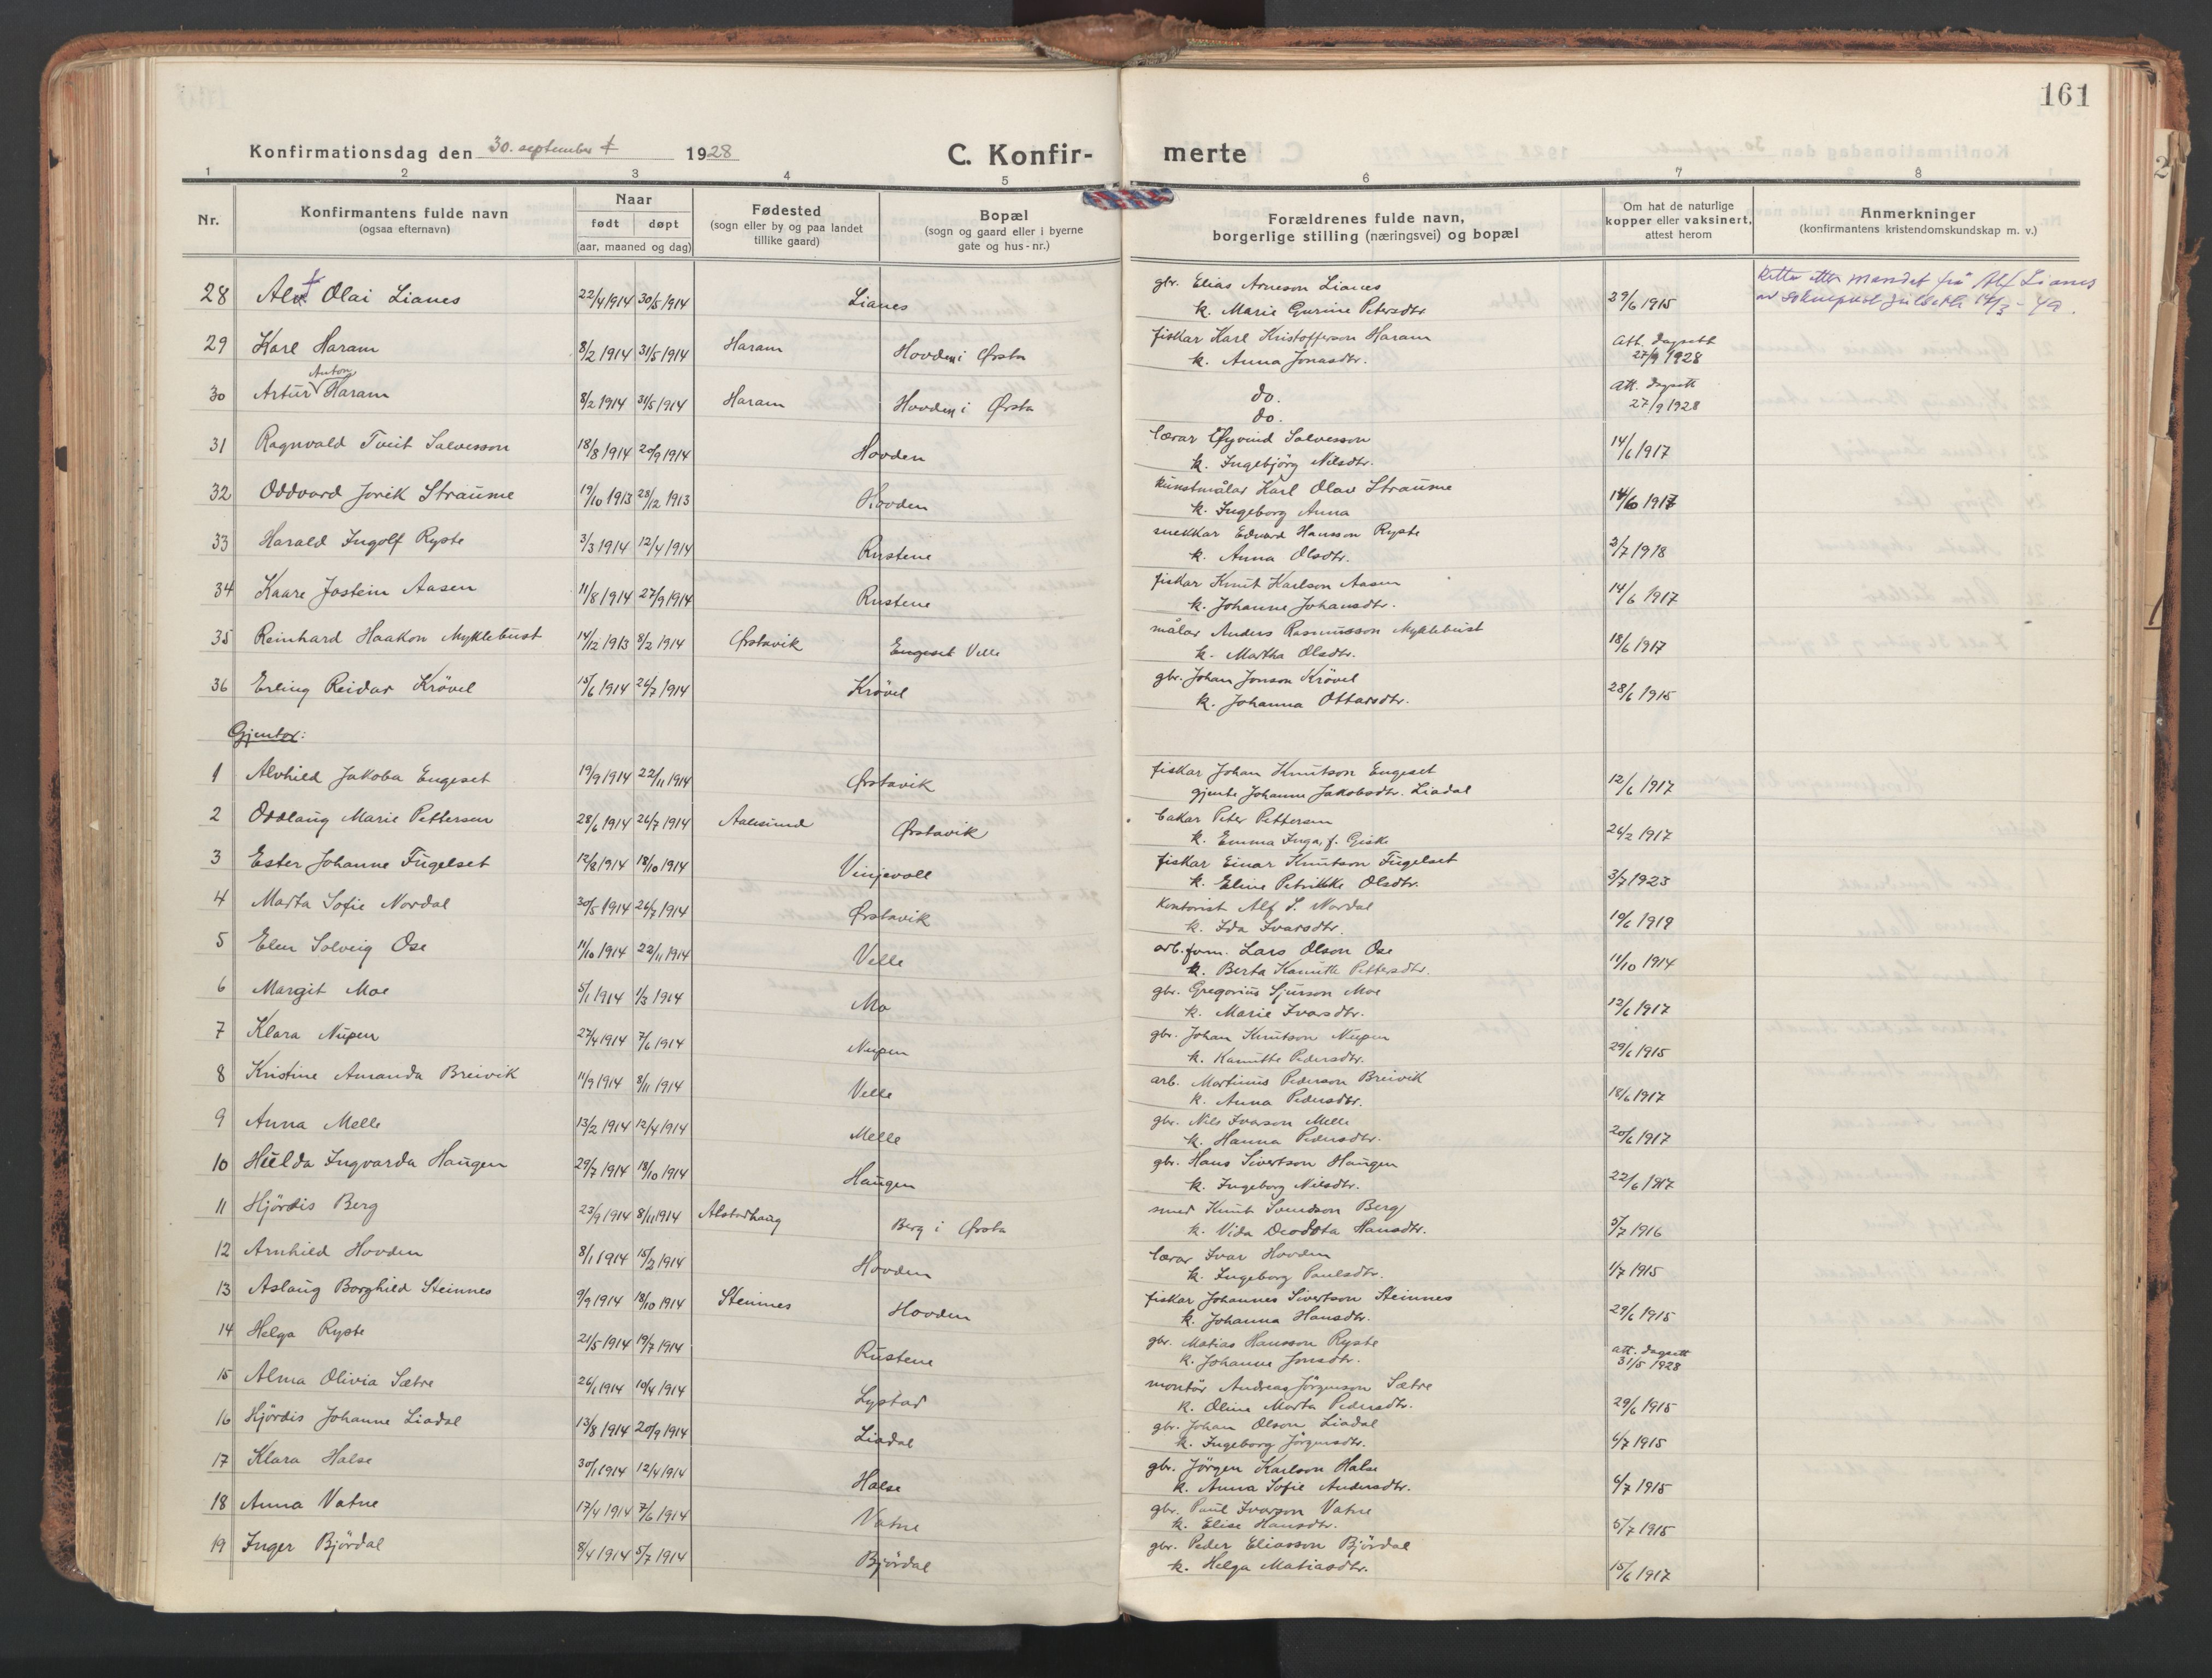 161
Konfirmationsdag den 30. september 1928
C. Konfir- merte
1 2 3 4 5 6 7 8
Nr.
Konfirmantens fulde navn
(ogsaa efternavn)
Naar
født døpt
(aar, maaned og dag)
Fødested
(sogn eller by og paa landet
tillike gaard)
Bopæl
(sogn og gaard eller i byerne
gate og hus-nr.)
Forældrenes fulde navn,
borgerlige stilling (næringsvei) og bopæl
Om hat de naturlige
kopper eller vaksinert,
attest herom
Anmerkninger
(konfirmantens kristendomskundskap m. v.)
28 Alf Olai Lianes 22/4 1914 30/5 1914 Lianes gbr. Elias Arneson Lianes
k. Marie Gurine Petersdtr. 29/6 1915
29 Karl Haram 8/2 1914 31/5 1914 Haram Hovden i Ørsta fiskar Karl Kristofferson Haram
k. Anna Jonasdtr. Att. dagsett
27/9 1928
30 Artur Anton Haram 8/2 1914 31/5 1914 Haram Hovden i Ørsta do.
do. Att. dagsett
27/9 1928
31 Ragnvald Tveit Salvesson 18/8 1914 20/9 1914 Hovden lærar Øyvind Salvesson
k. Ingebjörg Nilsdtr. 14/6 1917
32 Oddvard Jorik Straume 19/10 1913 28/12 1913 Hovden kunstmålar Karl Olav Straume
k. Ingeborg Anna 14/6 1917
33 Harald Ingolf Ryste 3/3 1914 12/4 1914 Rustene snekkar Edvard Hansson Ryste
k. Anna Olsdtr. 2/7 1918
34 Kaare Jostein Aasen 11/8 1914 27/9 1914 Rustene fiskar Knut Karlson Aasen
k. Johanne Johansdtr. 14/6 1917
35 Reinhard Haakon Myklebust 14/12 1913 8/2 1914 Ørstavik Engeset Velle målar Anders Rasmusson Myklebust
k. Martha Olsdtr. 18/6 1917
36 Erling Reidar Krövel 15/6 1914 26/7 1914 Krövel gbr. Johan Jonson Krövel
k. Johanna Ottarsdtr. 28/6 1915
Gjentor:
1 Alvhild Jakoba Engeset 19/9 1914 22/11 1914 Ørstavik fiskar Johan Knutson Engeset
gjente Johanne Jakobsdtr. Liadal 12/6 1917
2 Oddlaug Marie Pettersen 28/6 1914 26/7 1914 Aalesund Ørstavik bakar Peter Pettersen
k. Emma Inga, f. Giske 26/2 1917
3 Ester Johanne Fugelset 12/8 1914 18/10 1914 Vinjevoll fiskar Einar Knutson Fugelset
k. Eline Petrikke Olsdtr. 3/7 1923
4 Marta Sofie Nordal 30/5 1914 26/7 1914 Ørstavik Kontorist Alf S. Nordal
k. Ida Ivarsdtr. 19/6 1919
5 Elen Solveig Ose 11/10 1914 22/11 1914 Velle arb.form. Lars Olson Ose
k. Berta Kanutte Pettersdtr. 11/10 1914
6 Margit Moe 5/1 1914 1/3 1914 Mo gbr. Gregorius Sjurson Moe
k. Marie Ivarsdtr. 12/6 1917
7 Klara Nupen 27/4 1914 7/6 1914 Nupen gbr. Johan Knutson Nupen
k. Kanutte Pedersdtr. 29/6 1915
8 Kristine Amanda Breivik 11/9 1914 8/11 1914 Velle arb. Martinus Pederson Breivik
k. Anna Pedersdtr. 18/6 1917
9 Anna Melle 13/2 1914 12/4 1914 Melle gbr. Nils Ivarson Melle
k. Hanna Pedersdtr. 20/6 1917
10 Hulda Ingvarda Haugen 29/7 1914 18/10 1914 Haugen gbr. Hans Sivertson Haugen
k. Ingeborg Nilsdtr. 22/6 1917
11 Hjördis Berg 23/9 1914 8/11 1914 Alstadhaug Berg i Ørsta smed Knut Svendson Berg
k. Vida Deodota Hansdtr. 5/7 1916
12 Arnhild Hovden 8/1 1914 15/2 1914 Hovden lærar Ivar Hovden
k. Ingeborg Paulsdtr. 1/7 1915
13 Aslaug Borghild Steinnes 9/9 1914 18/10 1914 Steinnes Hovden fiskar Johannes Sivertson Steinnes
k. Johanna Hansdtr. 29/6 1915
14 Helga Ryste 21/5 1914 19/7 1914 Rustene gbr. Matias Hansson Ryste
k. Johanne Jonsdtr. att. dagsett
31/5 1928
15 Alma Olivia Sætre 26/1 1914 10/4 1914 Lystad montör Andreas Jörgenson Sætre
k. Oline Marta Pedersdtr. 29/6 1915
16 Hjördis Johanne Liadal 13/8 1914 20/9 1914 Liadal gbr. Johan Olson Liadal
k. Ingeborg Jörgensdtr. 6/7 1915
17 Klara Halse 30/1 1914 12/4 1914 Halse gbr. Jörgen Karlson Halse
k. Anna Sofie Andersdtr. 6/7 1915
18 Anna Vatne 17/4 1914 7/6 1914 Vatne gbr. Paul Ivarson Vatne
k. Elise Hansdtr. 5/7 1915
19 Inger Björdal 8/4 1914 5/7 1914 Björdal gbr. Peder Eliasson Björdal
k. Helga Matiasdtr. 15/6 1917